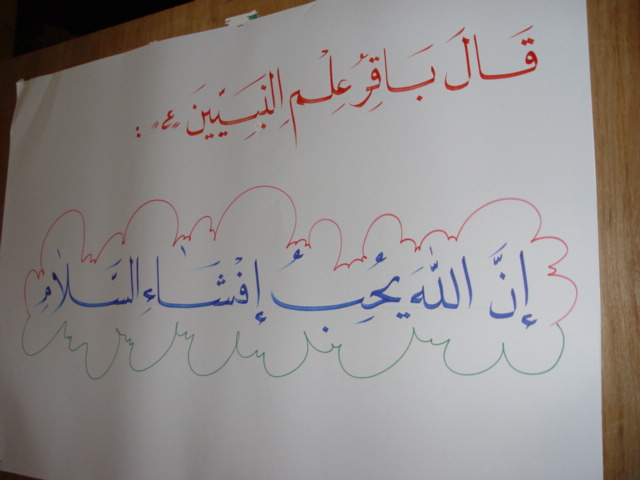 قَالَ بَاقِرُ عِلْمِ النَبِيّينَ «ع» :
إِنَّ اللّٰهَ يُحِبُّ إِفْشَاءِ السَّلَامُ